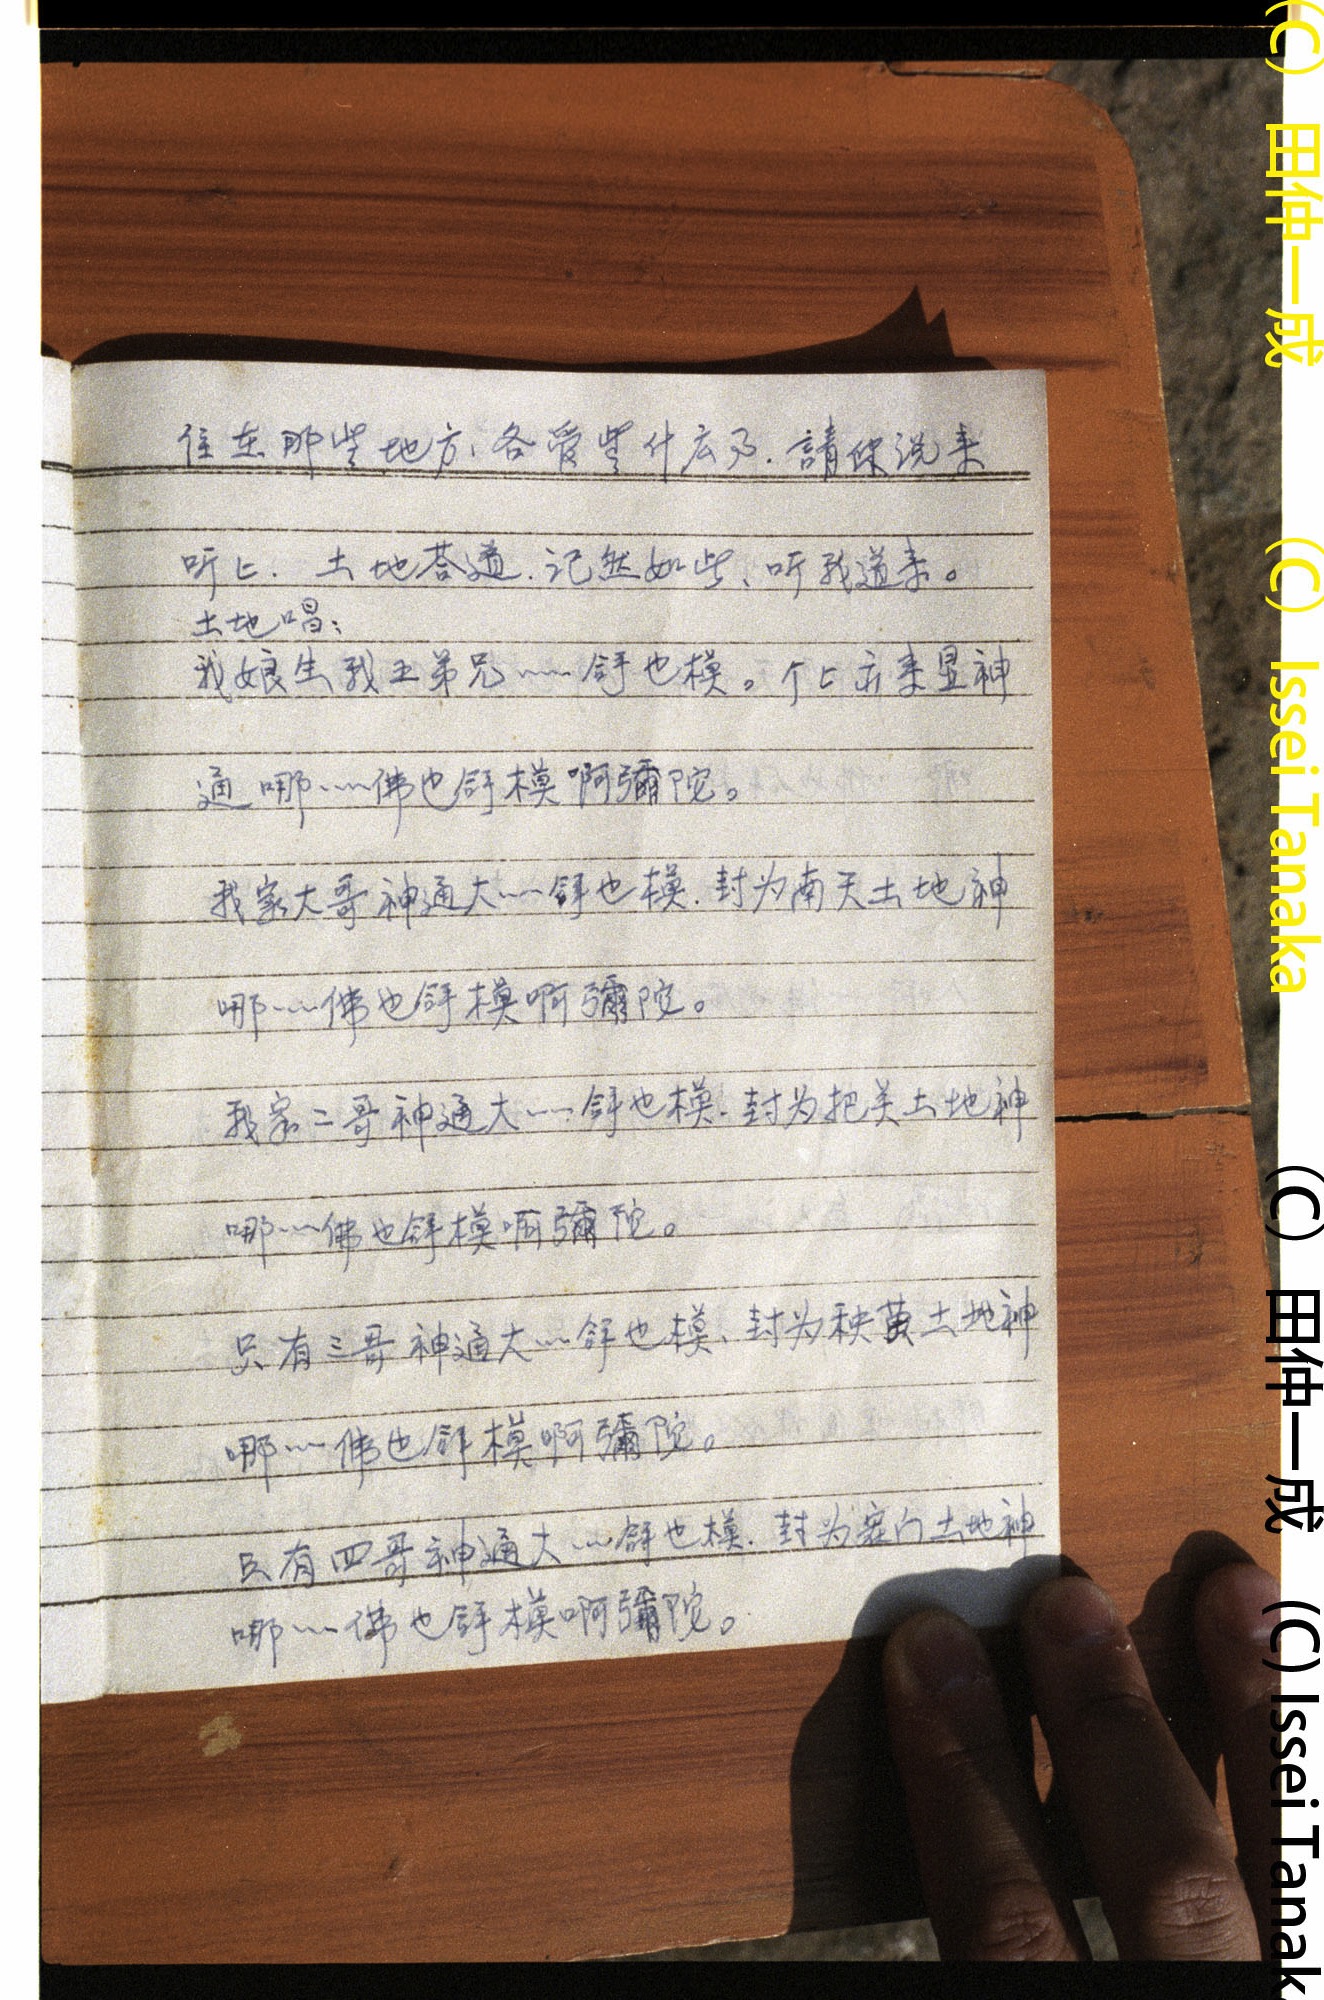 住在那些地方、各受些什么了.請你说来
听上. 土地荅道.记然如此、听我道来。
土地唱:
我娘生我五弟兄……舒也模。个上亦来显神
通哪……佛也舒模啊彌陀。
我家大哥神通大……舒也模.封为南天土地神
哪……佛也舒模啊彌陀。
我家二哥神通大……舒也模.封为把关土地神
哪……佛也舒模啊彌陀。
只有三哥神通大……舒也模、封为秧苗土地神
哪……佛也舒模啊彌陀。
只有四哥神通大……舒也模.封为寨门土地神
哪……佛也舒模啊彌陀。
(C) 田仲一成 (C) Issei Tanaka
(C) 田仲一成 (C) Issei Tanak